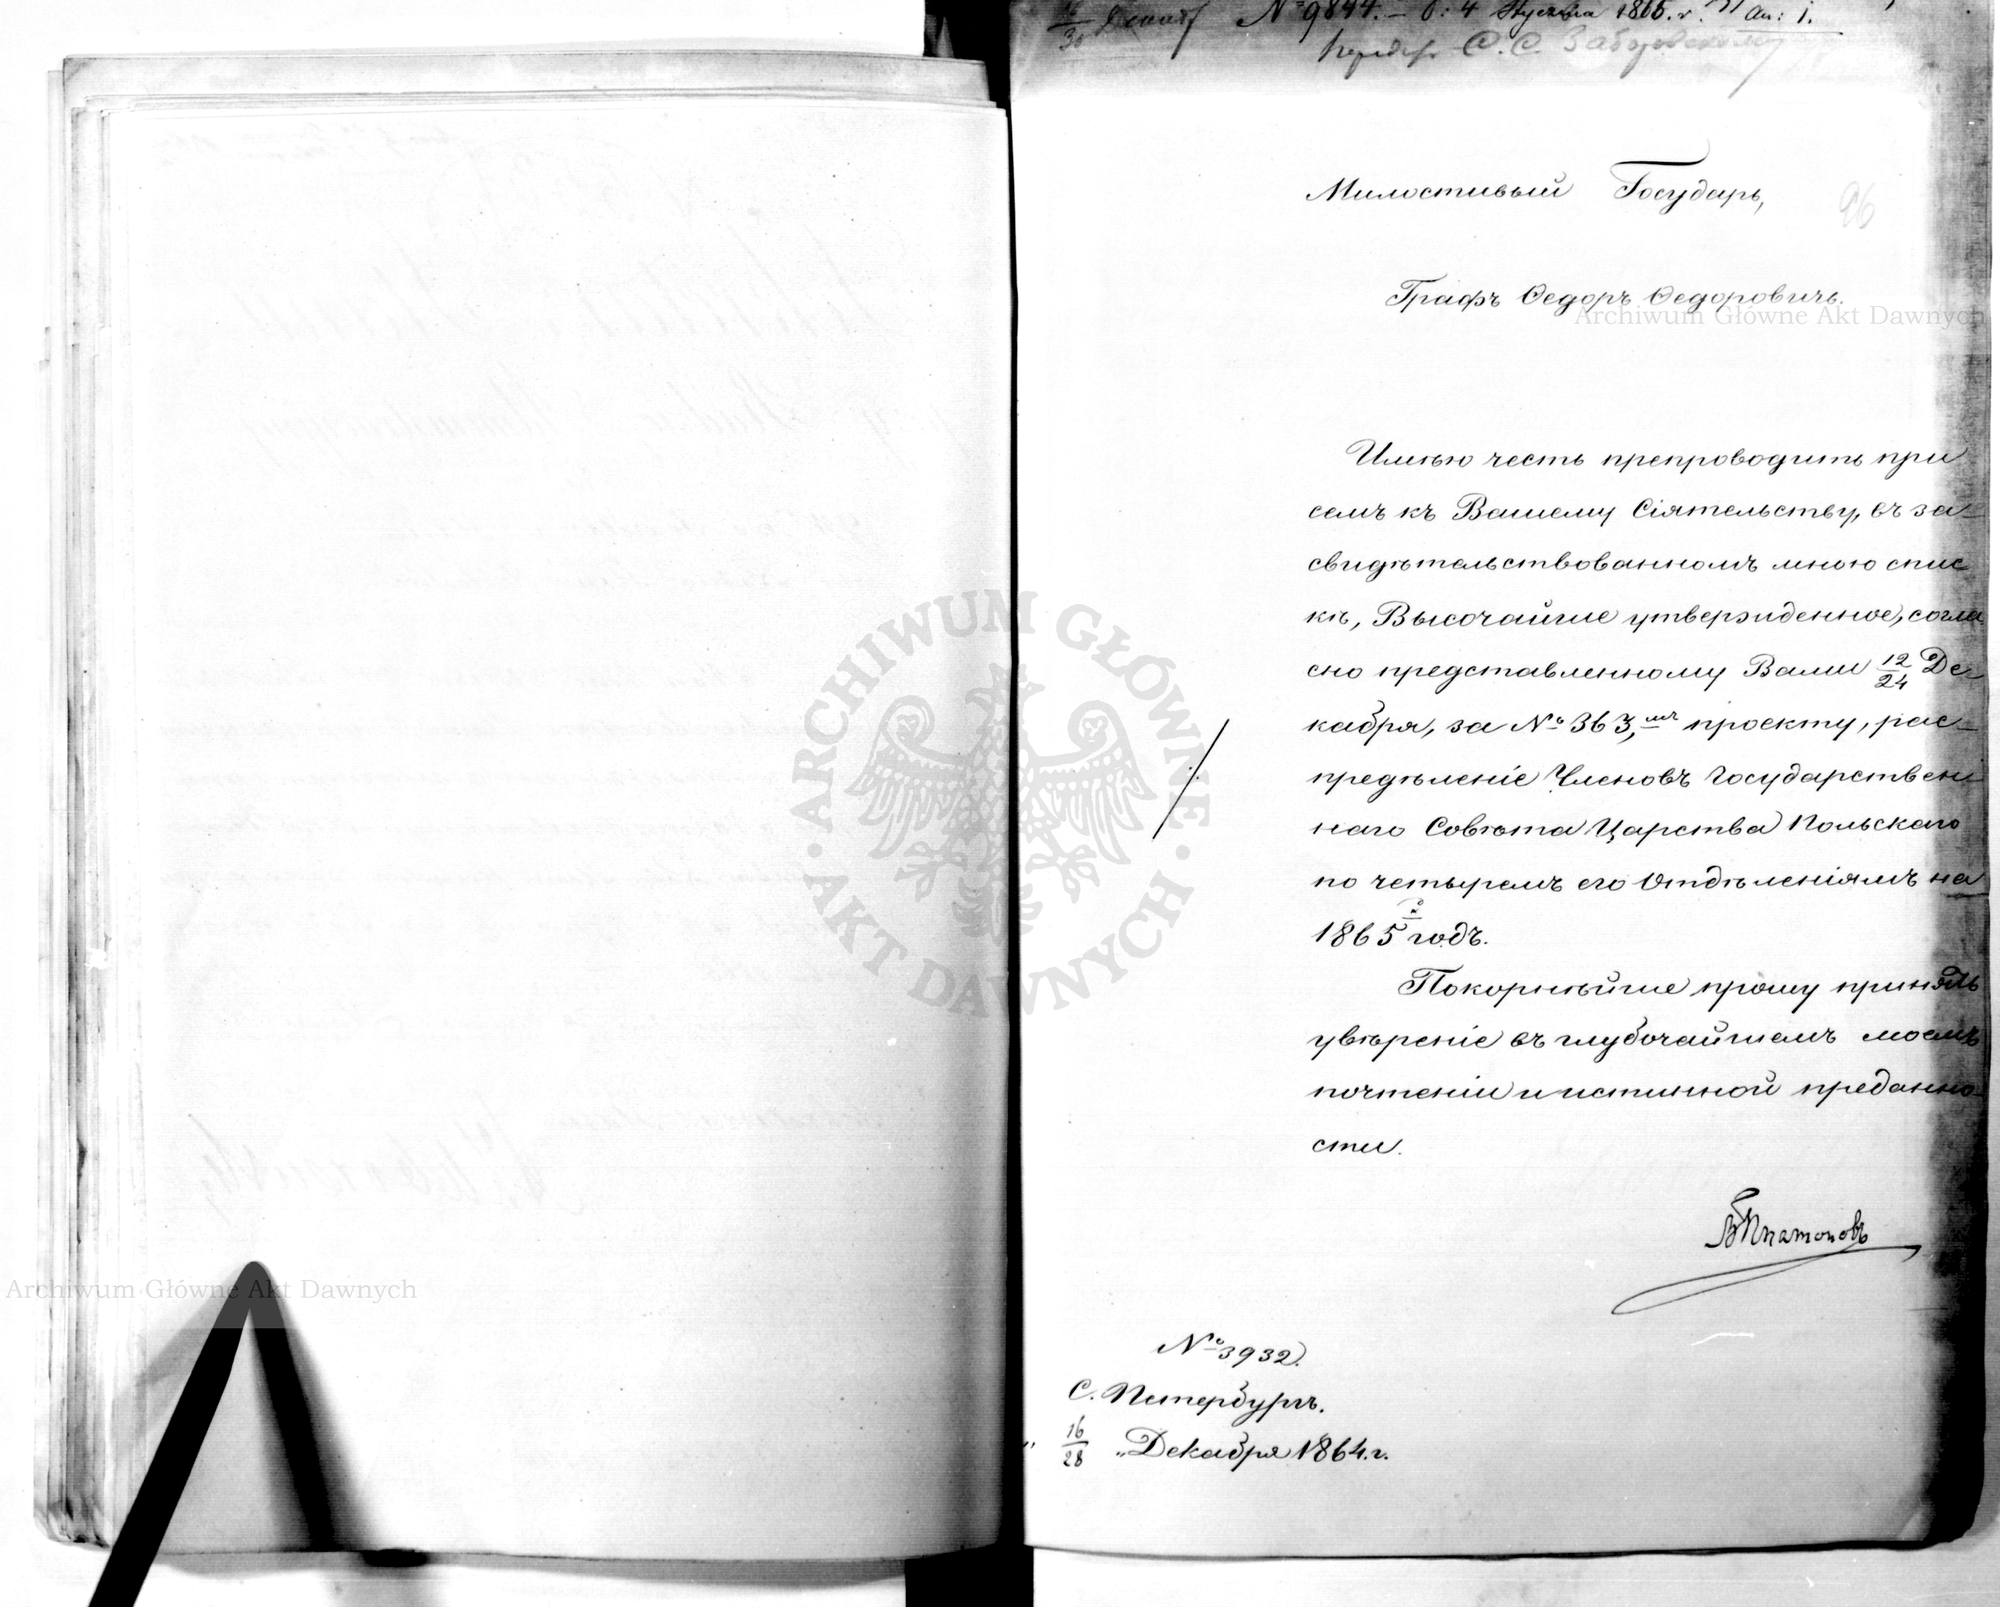 № 9844. – d: 4 Stycznia 1865. r. An: 1.
С. С. Заборовскому
Милостивый Государь,
96
Графъ Ѳедоръ Ѳедоровичъ.
Archiwum Główne Akt Dawnych
Имѣю честь препроводить при
семъ къ Вашему Сіятельству, въ за-
свидѣтельствованномъ мною спис
кѣ, Высочайше утвержденное, согла
сно представленному Вами 12/24 Де-
кабря, за № 363,мъ проекту, рас-
предѣленіе Членовъ Государствен
наго Совѣта Царства Польскаго
по четыремъ его Отдѣленіямъ на
1865й годъ.
Покорнѣйше прошу принять
увѣреніе въ глубочайшемъ моемъ
почтеніи и истинной преданно
сти.
ВПлатоновъ
№ 3932.
С. Петербургъ.
„ 16/28 „ Декабря 1864. г.
ARCHIWUM GŁÓWNE
AKT DAWNYCH
Archiwum Główne Akt Dawnych